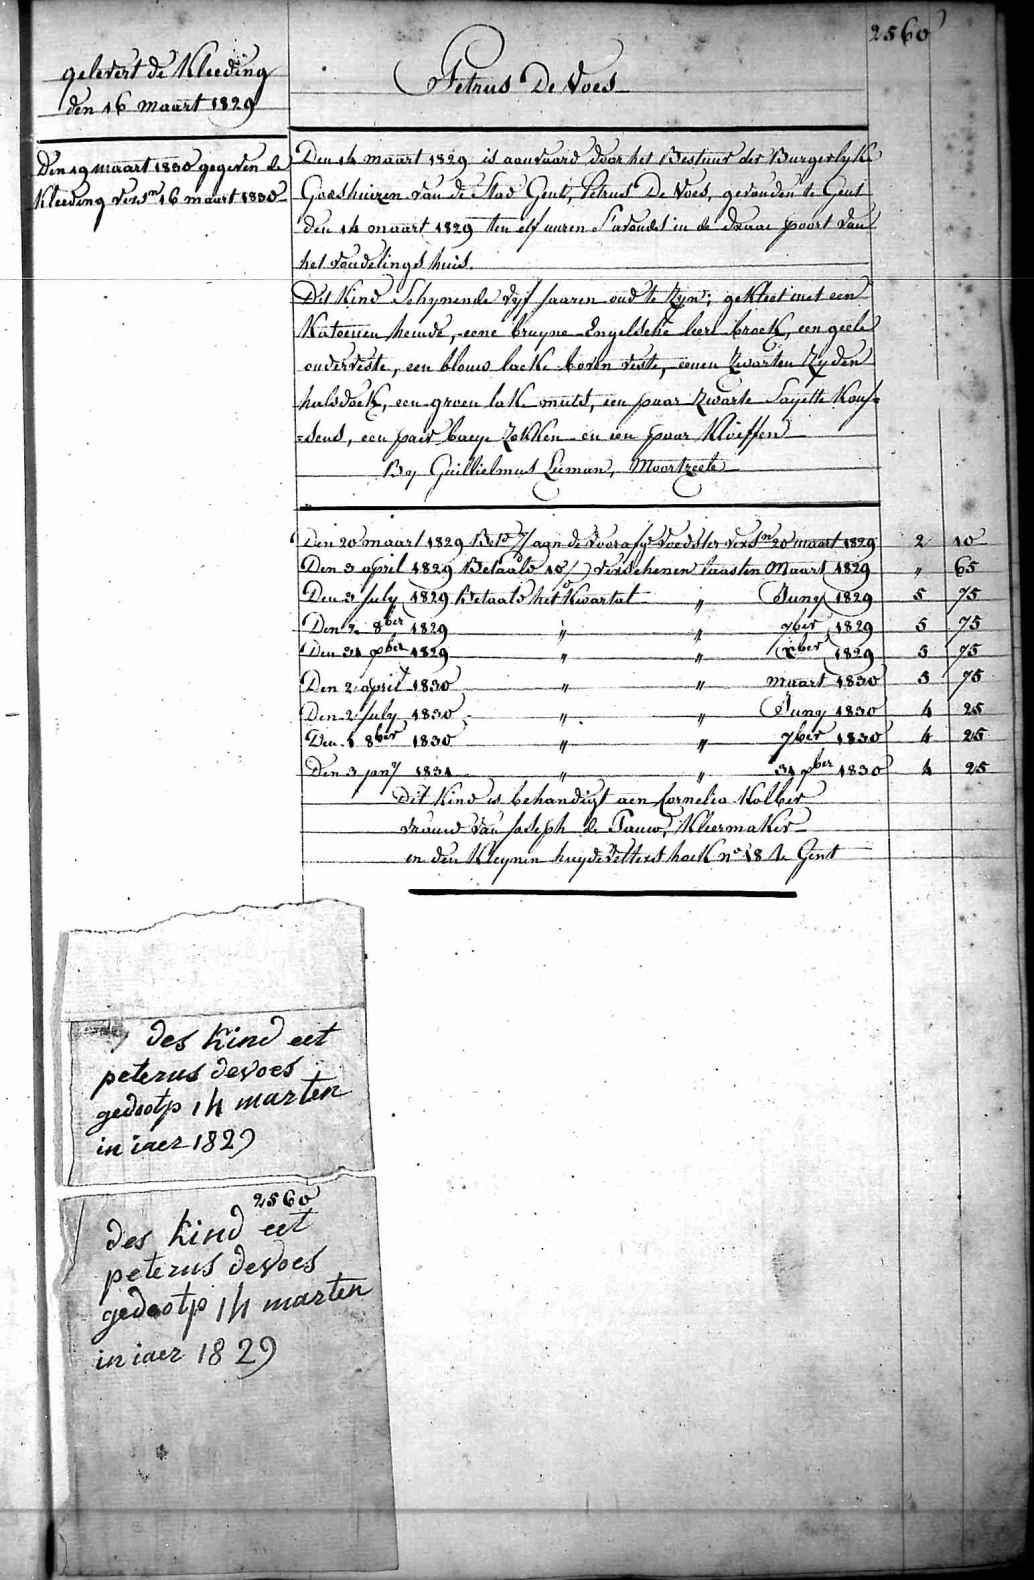 2560
gelevert de Kleeding
den 16 maart 1829
Petrus De Voes
Den 19 maart 1830 gegeven de
Kleeding versn 16 maart 1830
Den 14 maart 1829 is aanvaard door het Bestuur der Burgerlyke
Godshuizen van de Stad Gent, Petrus De Voes, gevonden te Gent
den 14 maart 1829 ten elf uuren s'avonds in de draae poort van
het vondelings huis.
Dit Kind Schynende vyf jaaren oud te zyn; gekleet met een
Katoenen hemde, eene bruyne Engelsche leere broek, een geele
onderveste, een blouw lacke boven veste, eenen zwarten zyden
halsdoek, een groen lake muts, een paar zwarte Sajette Kous=
=sens, een paar baeye zokken en een paar Kloeffen
By Guillielmus Leeman, Moortzeele
Den 20 maart 1829 aan de voedster versn 20 maart 1829 2 10
Den 3 april 1829 Betaald verschenen laasten Maart 1829 " 65
Den 3 July 1829 Betaald het Kwartal " Juny 1829 5 75
Den 2 8ber 1829 " " 7ber 1829 5 75
Den 31 xber 1829 " " xber 1829 5 75
Den 2 april 1830 " " maart 1830 5 75
Den 2 July 1830 " " Juny 1830 4 25
Den 1 8ber 1830 " " 7ber 1830 4 25
Den 3 jany 1831 " " 31 xber 1830 4 25
Dit Kind is behandigt aen Cornelia Kolber
vrouw van Joseph de Pauw, Kleermaker
in den Kleynen huydevetters hoek no 18 te Gent
des kind eet
peterus devoes
gedootp 14 marten
in iaer 1829
2560
des kind eet
peterus devoes
gedootp 14 marten
in iaer 1829